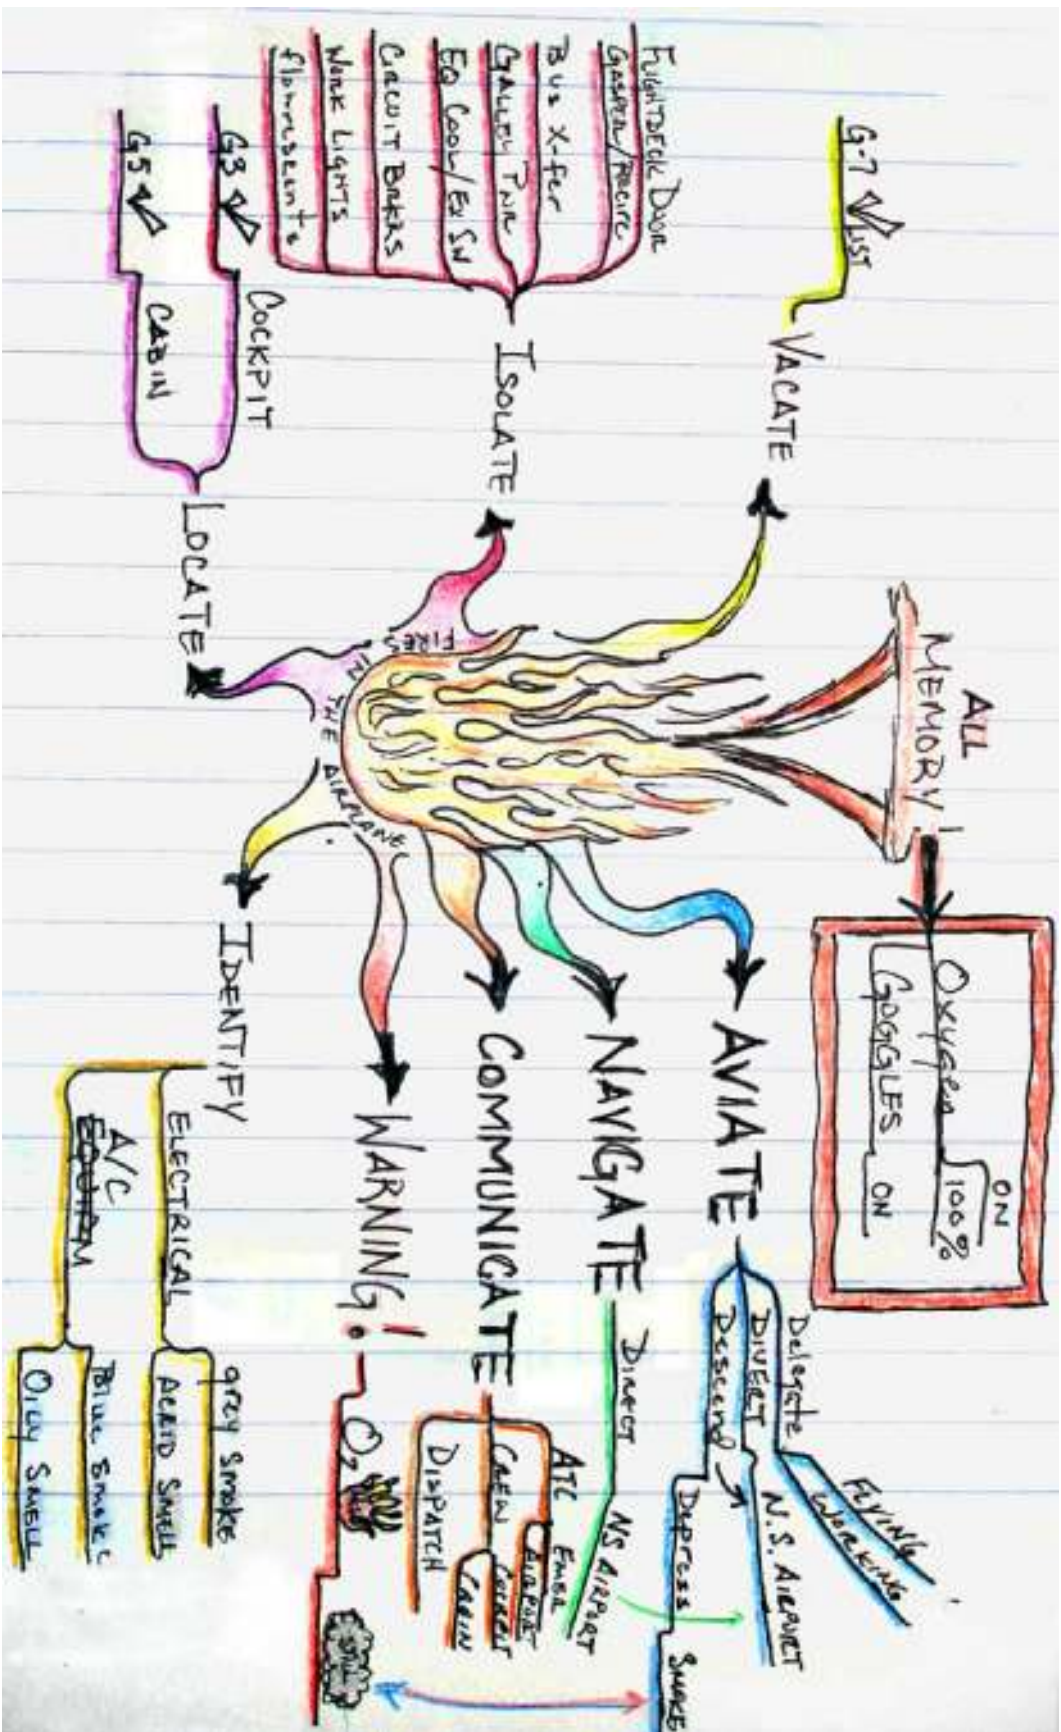 ALL
MEMORY!
OXYGEN
ON
100%
GOGGLES ON
FIRES
IN
THE
AIRPLANE
AVIATE
Delegate
FLYING
WORKING
DIVERT
N.S. AIRPORT
Descend
Depress
SMOKE
NAVIGATE
DIRECT
NS AIRPORT
COMMUNICATE
ATC
EMER
AIRPORT
CREW
COCKPIT
CABIN
DISPATCH
WARNING!
O2
STILL
IDENTIFY
ELECTRICAL
grey Smoke
ACRID SMELL
A/C
EQUIPM
Blue Smoke
OILY SMELL
LOCATE
COCKPIT
G3
CABIN
G5
ISOLATE
FLIGHTDECK DOOR
GASPER/RECIRC
BUS X-fer
GALLEY PWR
EQ COOL/EX SW
CIRCUIT BRKRS
WORK LIGHTS
VACATE
G-7
LIST